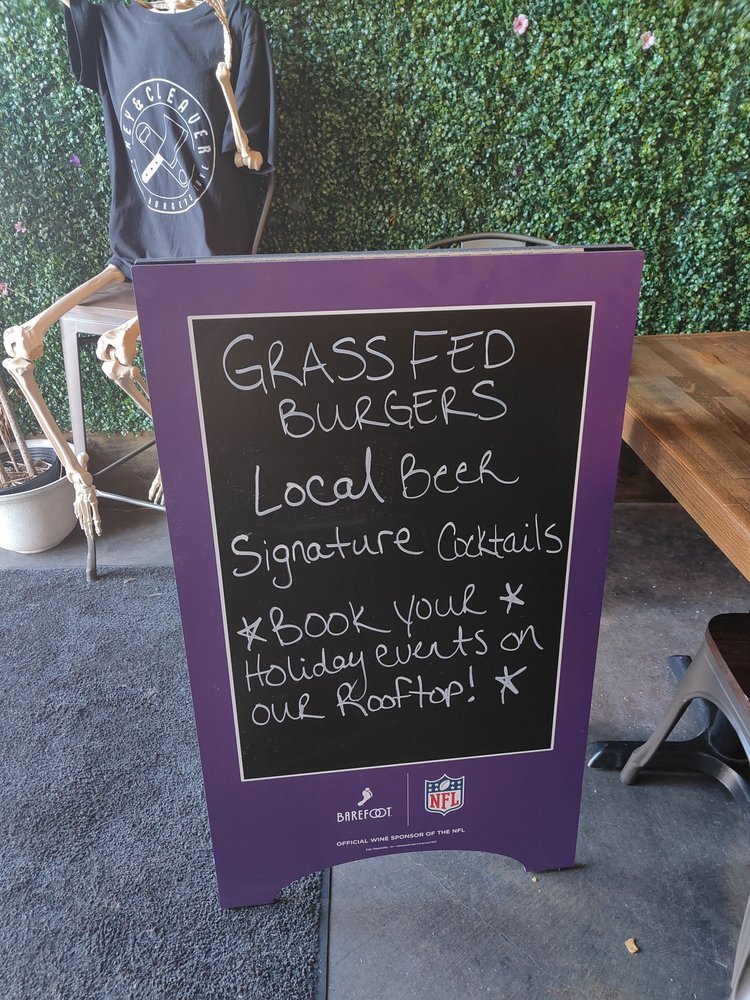 KEY & CLEAVER
GRASS FED
BURGERS
Local Beer
Signature Cocktails
BOOK YOUR
Holiday events on
our Rooftop!
BAREFOOT
NFL
OFFICIAL WINE SPONSOR OF THE NFL